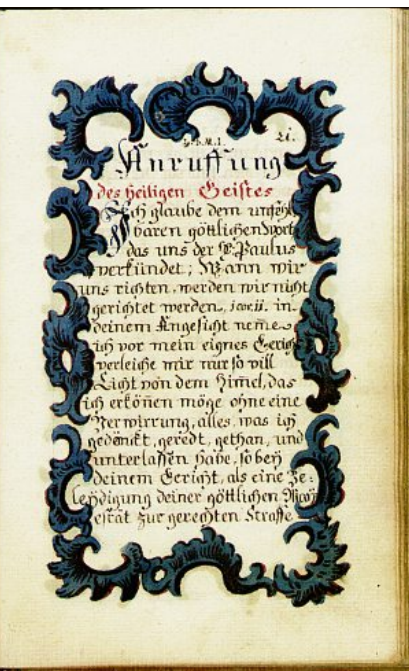 21.
Anruffung
des Heiligen Geistes
Ich glaube dem unfehl
baren göttlichen Wort
das uns der H. Paulus
verkündet; Wann wir
uns richten, werden wir nicht
gerichtet werden, 1 cor. 11. in
deinem Angesicht neme
ich vor mein eignes Gericht
verleiche mir nur so vill
Licht von dem Himel, das
ich erköñen möge ohne eine
Verwirrung, alles, was ich
gedänckt, geredt, gethan, und
unterlassen habe, so beÿ
deinem Gericht, als eine Be:
leÿdigung deiner göttlichen Maÿ
estät zur gerechten Straffe